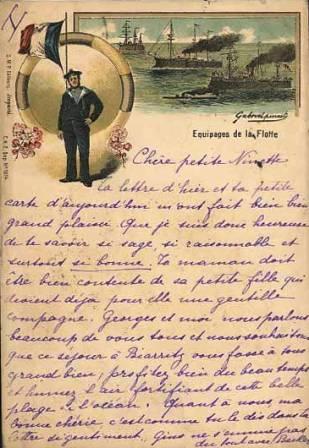 Equipages de la Flotte
Chère petite Ninette
la lettre d'hier et ta petite
carte d'aujourd'hui m'ont fait bien bien
grand plaisir. Que je suis donc heureuse
de te savoir si sage, si raisonnable et
surtout si bonne. Ta maman doit
être bien contente de sa petite fille qui
devient déjà pour elle une gentille
compagne. Georges et moi nous parlons
beaucoup de vous tous et nous souhaitons
que ce séjour à Biarritz vous fasse à tous
grand bien, profitez bien du beau temps
et humez l'air fortifiant de cette belle
plage à l'océan. Quant à nous ma
bonne chérie, c'est comme tu le dis dans ta
lettre si gentiment, Gino ne s'ennuie pas
du tout avec